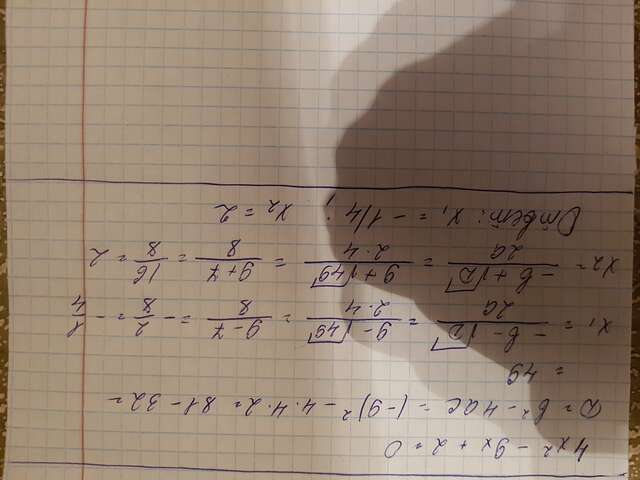 4x² - 9x + 2 = 0
D = b² - 4ac = (-9)² - 4·4·2 = 81 - 32 =
= 49
x₁ = (-b - √D)/2a = (9 - √49)/(2·4) = (9 - 7)/8 = -2/8 = -1/4
x₂ = (-b + √D)/2a = (9 + √49)/(2·4) = (9 + 7)/8 = 16/8 = 2
Ответ: x₁ = -1/4 ; x₂ = 2